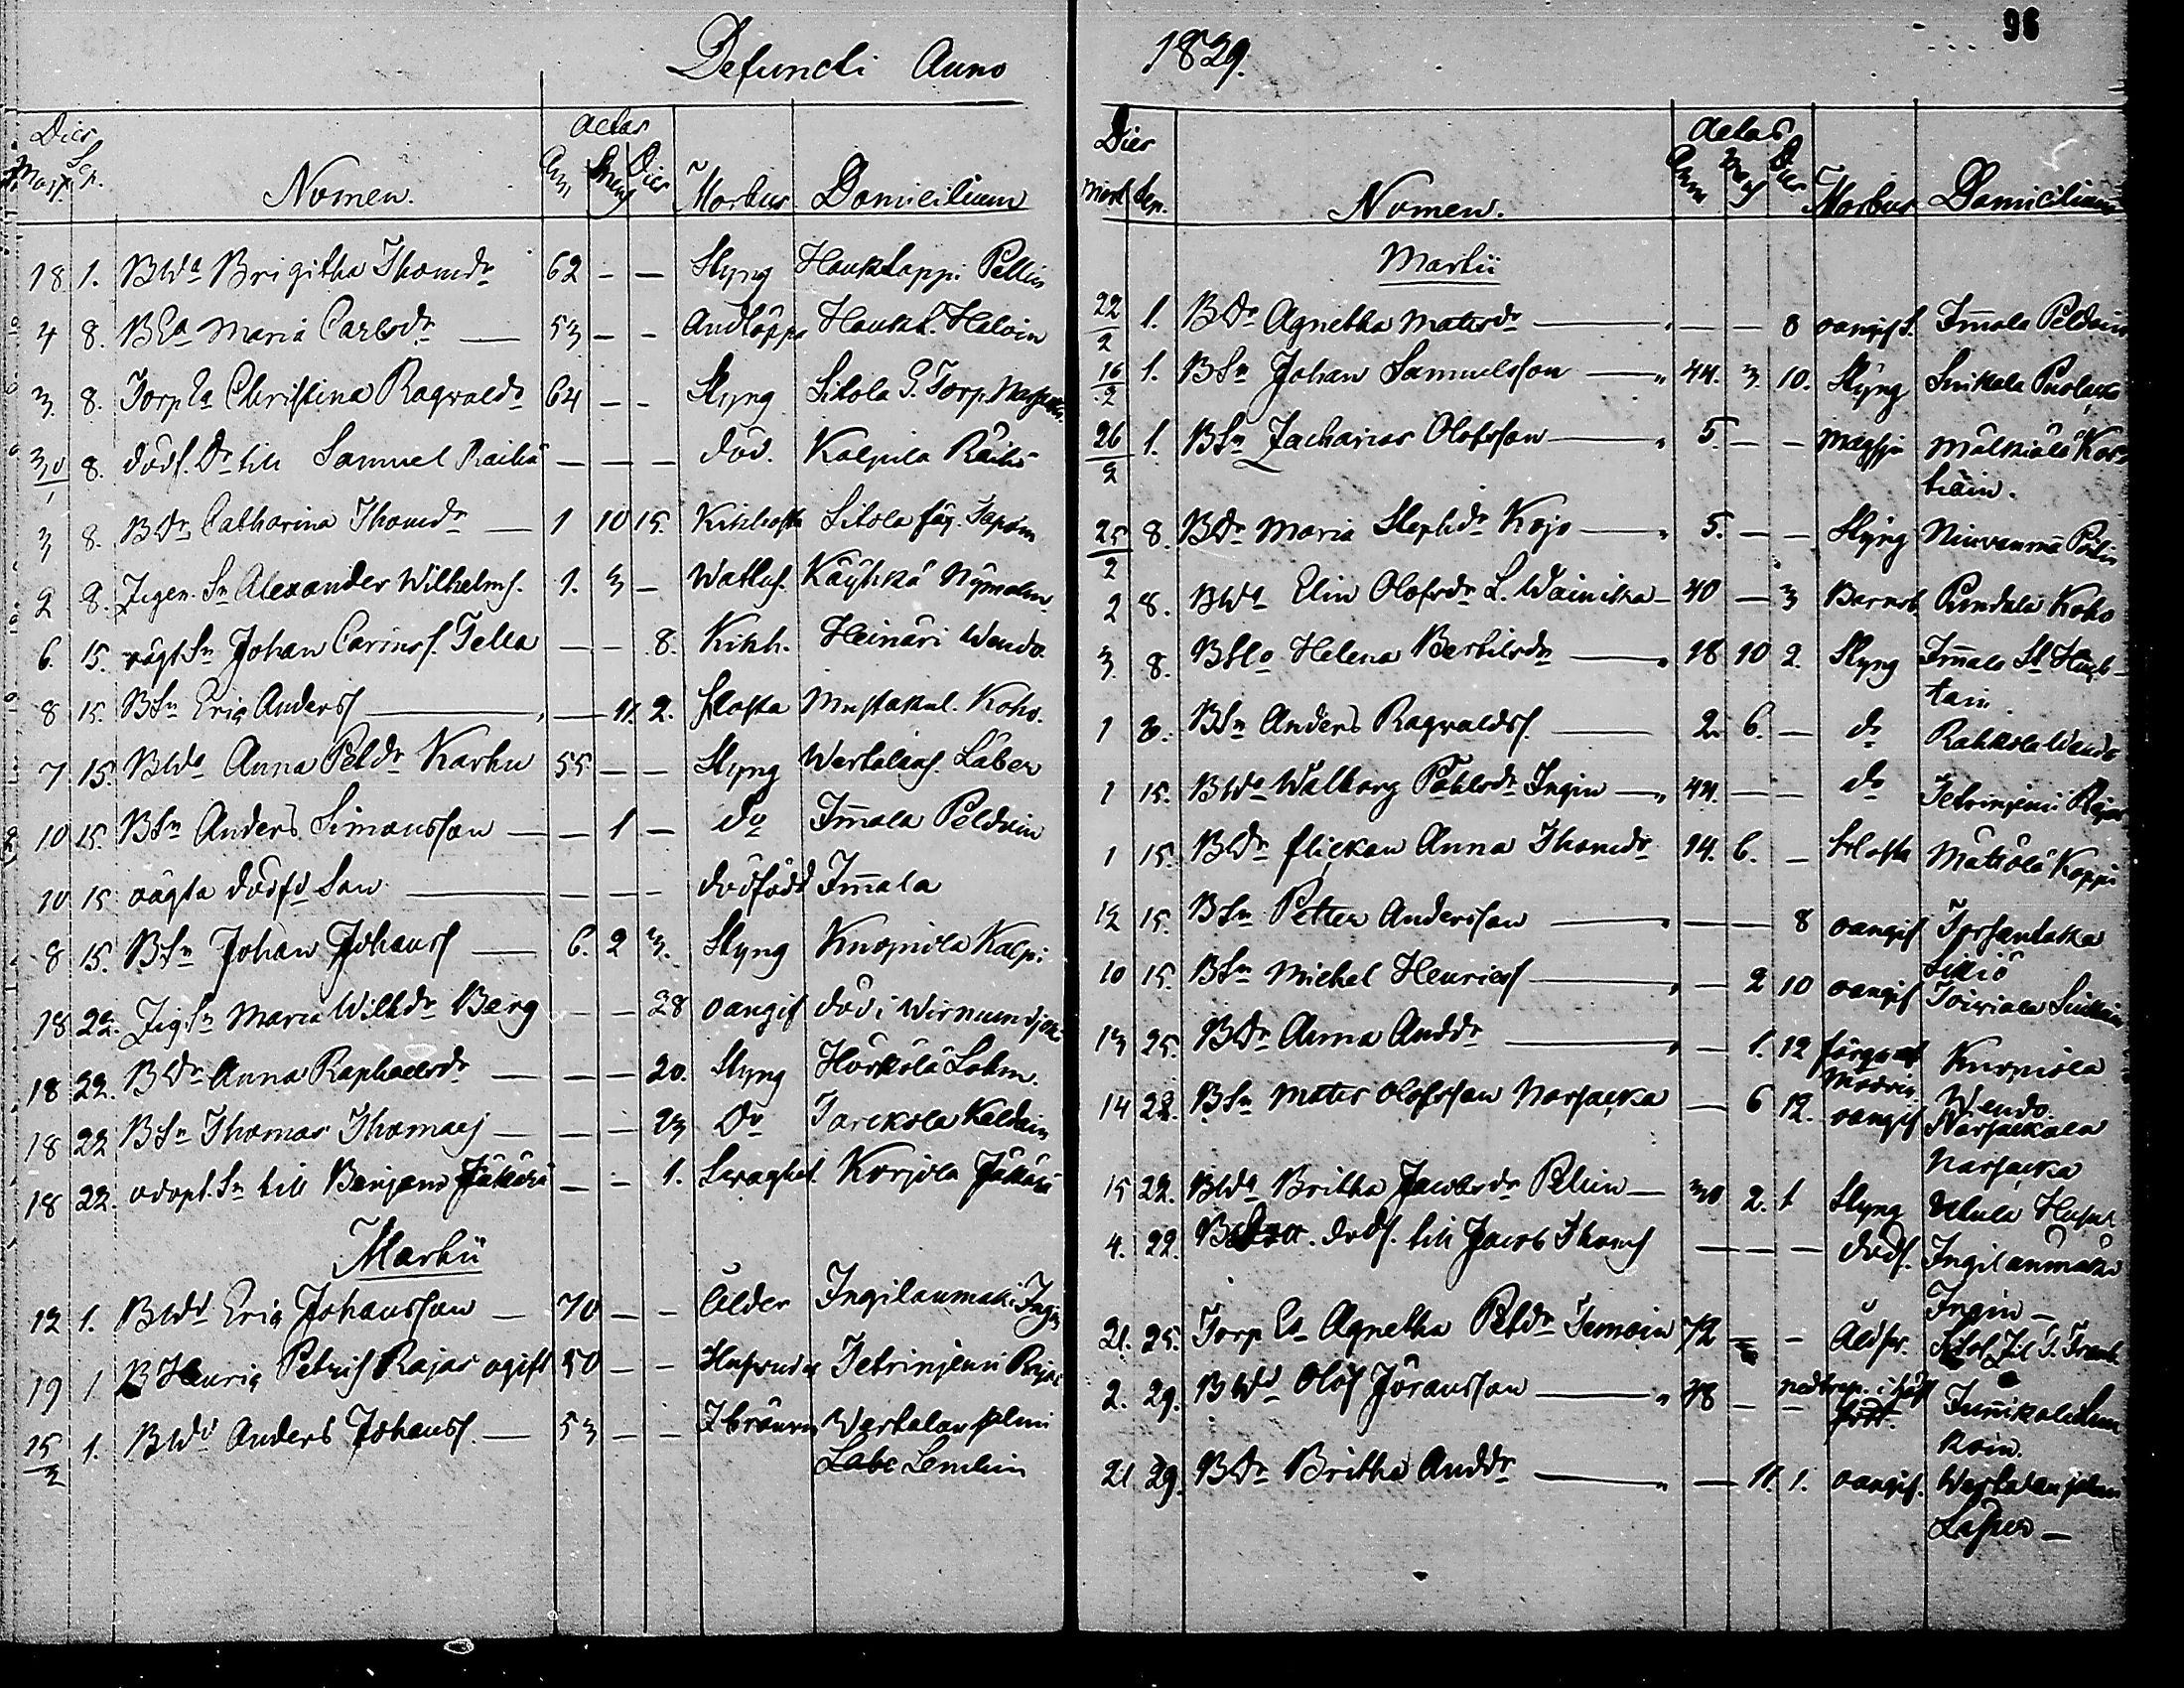 96
Defuncti Anno
Dies Aetas
Mort. Sep. Nomen. Ann Mens Dies Morbus Domicilium
18 1. BWa Brigitha Thomdr 62 - - Styng Hauklappi Pellin
4 8. BEa Maria Carlsdr — 53 - - Andtäppa Haukl. Halvin
3. 8. Torp Ea Christina Ragvaldr 64 - - Styng Sitola G. Torp.
30/1 8. dödf. Dr till Samuel Raihä — — — död. Kalpila Räihä
3 8. BDr Catharina Thomdr — 1 10 15. Kikhosta Sitola
2 8. Zigen. Sn Alexander Wilhelmss. 1. 3 - Wattus. Käyhkä Nymalm
6. 15. oägt Sn Johan Carinss. Tella — — 8. Kikh. Heinäri Wendo.
8 15. BSn Eric Anderss — — 11. 2. Slosta Mustakul. Koho.
7 15. BWa Anna Petdr Karhu 55 - - Styng Wertalans. Läber
10 15. BSn Anders Simonsson — — 1 — do Imala Peldoin
10 15 oägta dödfd Son — — — — dödfödd Imala
8 15. BSn Johan Johanss — 6. 2 3. Styng Knopiola Kalpi
18 22. Zig. Sn Maria Wilhdr Berg — — 28 oangif död i
18 22. BDr Anna Raphaelsdr — — — 20. Styng Hörkölä Lohm.
18 22 BSn Thomas Thomass — — — 23 Do Jarekola Kaldain
18 22. adopt. Sn till Benjam Jäkäri — — 1. Svaghet Korjola Jäkäri
Martii
12 1. BWdr Eric Johansson — 70 - - Ålder Ingilanmäki Ingin
19 1. B Henric Petriss Rajas ogift 50 - - Hufvudv Jetrinjemi Rajas
25/2 1. BWdr Anders Johanss. — 53 - - Wertalansalmi
Labe Lemlin
1829.
Dies Aetas
Mort Sep. Nomen. Ann Mens Dies Morbus Domicilium
Martii
22/2 1. BDr Agnetha Matsdr — — — 8 oangif. Imala Peldoin
16/2 1. BSn Johan Samuelsson — 44. 3. 10. Styng Suikala Puolakk
26/2 1. BSn Zacharias Olofsson — 5. — — Mässju Mälkiälä Kos
tiain.
25/2 8. BDr Maria Stephdr Kojo — 5. — — Styng
2 8. BWa Elin Olofsdr L. Wainikka — 40 — 3 Barnsb Pundala Koho
3. 8. BSlo Helena Bertilsdr — 18 10 2. Styng Imala
tain.
1 8. BSn Anders Ragvaldss. — 2. 6. — do Rahkola Wendo
1 15. BWa Walborg Påhlsdr Ingin — 44. — — do Jetrinjemi Rajas
1 15. BDr flickan Anna Thomdr 14. 6. — Slosta Mätiölä Kappi
12 15. BSn Petter Andersson — — — 8 oangif Torsanlaka
Sikiö
10 15. BSn Michel Henricss — — 2 10 oangif Toiviala Suikain
13 25. BDr Anna Anddr — — 1. 12 förqwäf Knopiola
Modren Wendo.
14 22. BSn Mats Olofsson Narjacka — 6 12. oangif Narjackala
Narjacka
15 22. BWa Britha Jacobsdr Pelin — 30 2. 1 Styng Utula
4. 22. dödf. till Jacob Thomss — — — dödf. Ingilanmäki
Ingin —
21. 25. Torp Ea Agnetha Petdr Temoin 72 — - Åldr.
2. 29. BWdr Olof Jöransson — 48 — — Junikala
koin.
21 29. BDr Britha Anddr — — 11. 1. oangif. Wertalansalmi
Lasper —